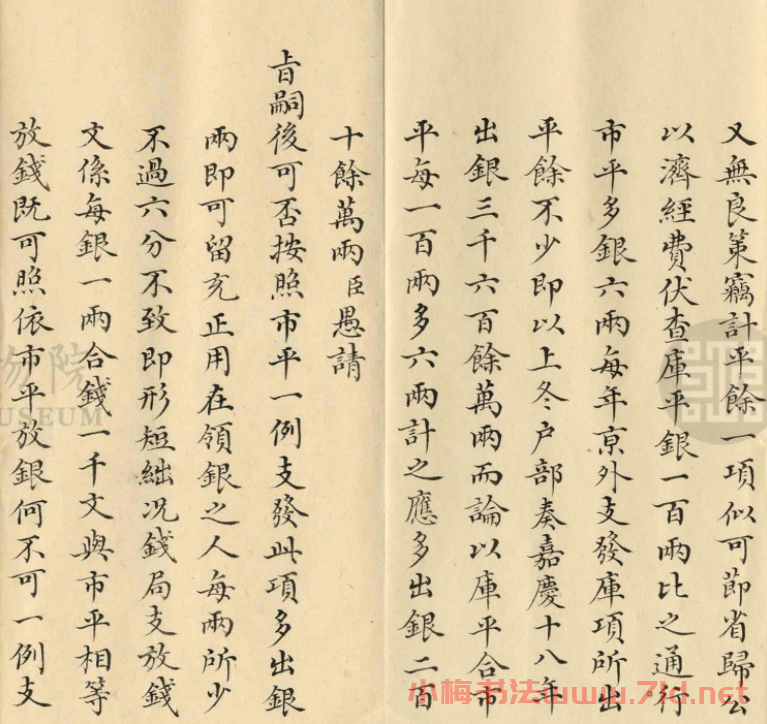 又無良策竊計平餘一項似可節省歸公
以濟經費伏查庫平銀一百兩比之通行
市平多銀六兩每年京外支發庫項所出
平餘不少即以上冬户部奏嘉慶十八年
出銀三千六百餘萬兩而論以庫平合市
平每一百兩多六兩計之應多出銀二百
十餘萬兩臣愚請
旨嗣後可否按照市平一例支發此項多出銀
兩即可留充正用在領銀之人每兩所少
不過六分不致即形短絀况錢局支放錢
文係每銀一兩合錢一千文與市平相等
放錢既可照依市平放銀何不可一例支
物院
MUSEUM
小梅书法www.7ld.net